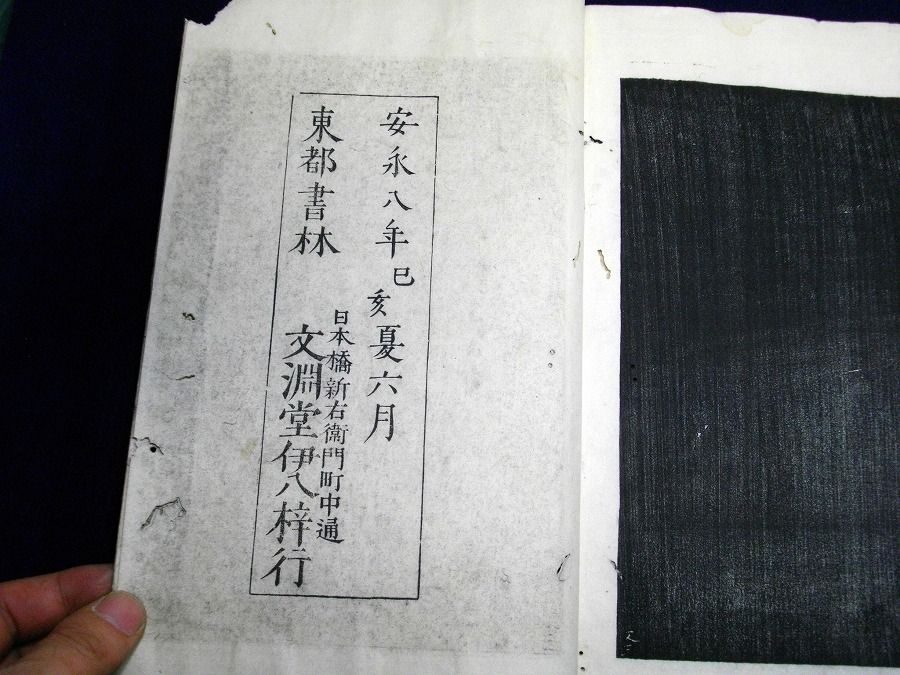 安永八年巳亥夏六月
東都書林
日本橋新右衛門町中通
文淵堂伊八梓行